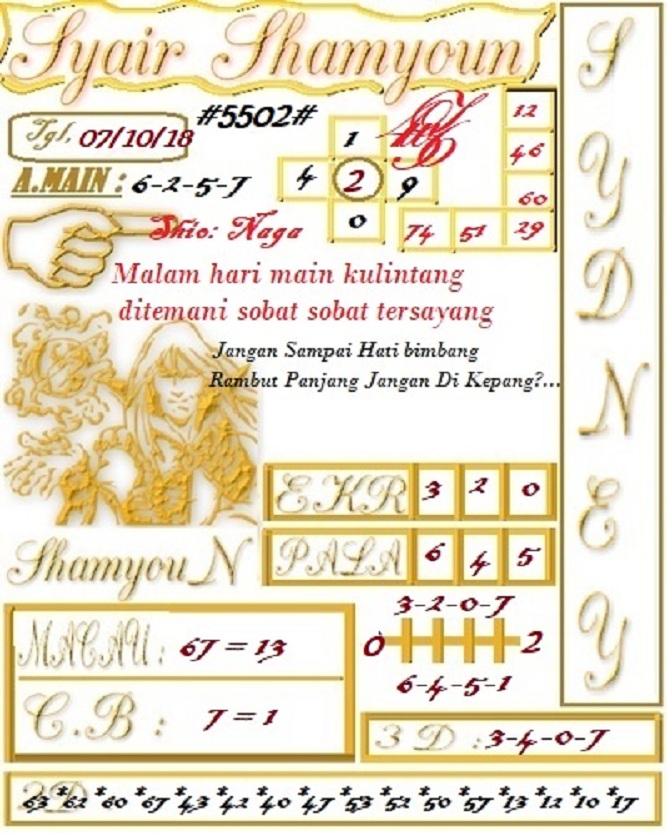 Syair Shamyoun
#5502#
Tgl, 07/10/18
A.MAIN : 6-2-5-7
1
4 2 9
0
12
46
60
74 51 29
Shio: Naga
Malam hari main kulintang
ditemani sobat sobat tersayang
Jangan Sampai Hati bimbang
Rambut Panjang Jangan Di Kepang?...
EKR 3 2 0
PALA 6 4 5
ShamyouN
MACAU : 67 = 13
C.B : 7 = 1
3-2-0-7
0 2
6-4-5-1
3D :3-4-0-7
2D
63*62*60*67*43*42*40*47*53*52*50*57*13*12*10*17
SYDNEY